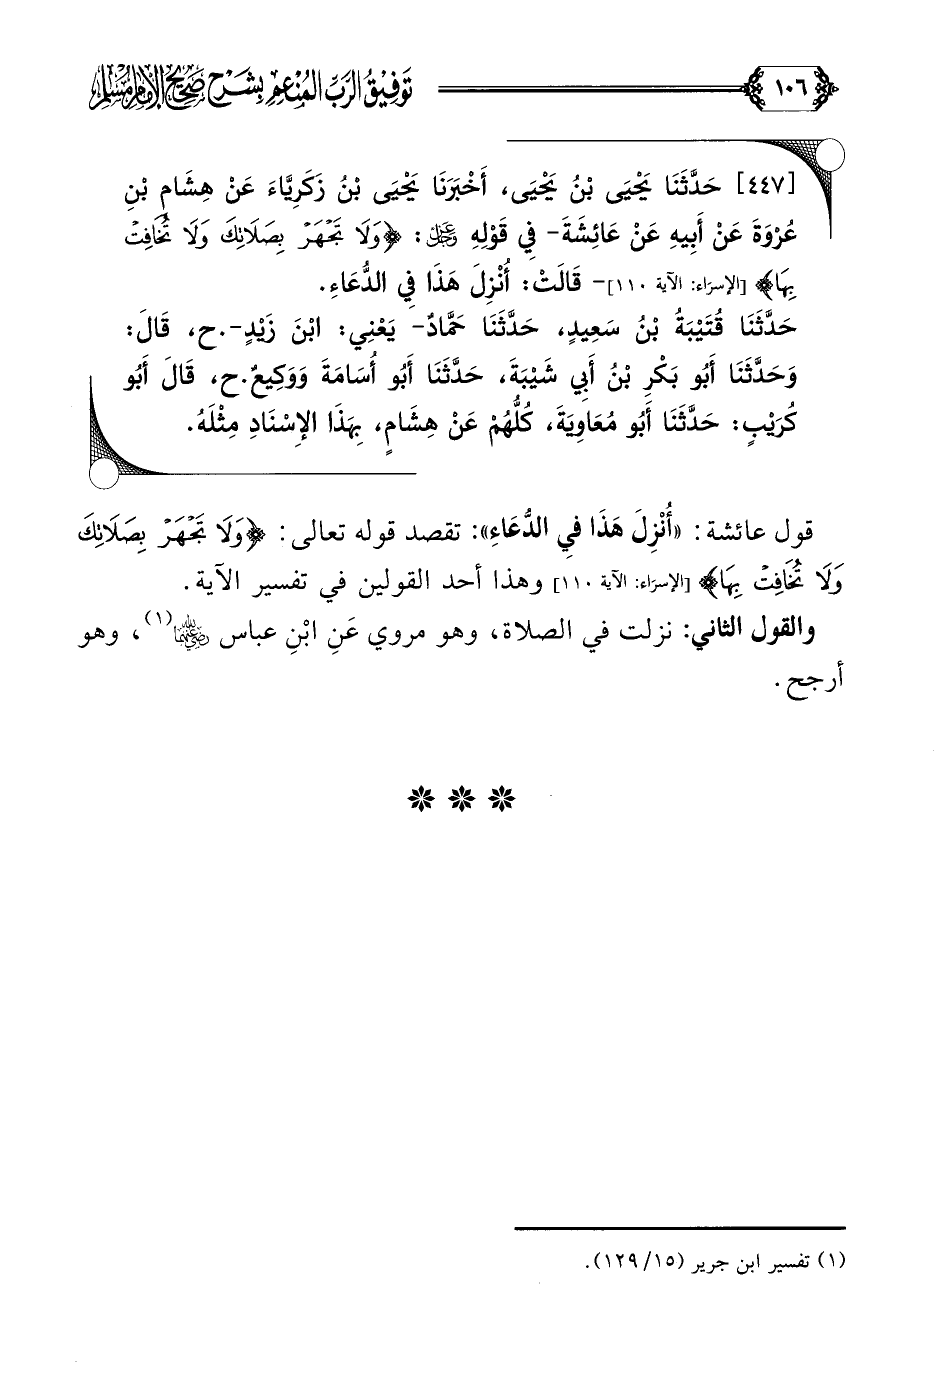 ١٠٦
تَوفِيقُ الرَّبِّ المُنْعِمِ بِشَرْحِ صَحِيحِ الإِمَامِ مُسْلِم
[٤٤٧] حَدَّثَنَا يَحْيَى بْنُ يَحْيَى، أَخْبَرَنَا يَحْيَى بْنُ زَكَرِيَّاءَ عَنْ هِشَامِ بْنِ
عُرْوَةَ عَنْ أَبِيهِ عَنْ عَائِشَةَ- فِي قَوْلِهِ عَزَّ وَجَلَّ: ﴿وَلَا تَجْهَرْ بِصَلَاتِكَ وَلَا تُخَافِتْ
بِهَا﴾ [الإسرَاء: الآية ١١٠]- قَالَتْ: أُنْزِلَ هَذَا فِي الدُّعَاءِ.
حَدَّثَنَا قُتَيْبَةُ بْنُ سَعِيدٍ، حَدَّثَنَا حَمَّادٌ- يَعْنِي: ابْنَ زَيْدٍ-.ح، قَالَ:
وَحَدَّثَنَا أَبُو بَكْرِ بْنُ أَبِي شَيْبَةَ، حَدَّثَنَا أَبُو أُسَامَةَ وَوَكِيعٌ.ح، قَالَ أَبُو
كُرَيْبٍ: حَدَّثَنَا أَبُو مُعَاوِيَةَ، كُلُّهُمْ عَنْ هِشَامٍ، بِهَذَا الإِسْنَادِ مِثْلَهُ.
قول عائشة: «أُنْزِلَ هَذَا فِي الدُّعَاءِ»: تقصد قوله تعالى: ﴿وَلَا تَجْهَرْ بِصَلَاتِكَ
وَلَا تُخَافِتْ بِهَا﴾ [الإسرَاء: الآية ١١٠] وهذا أحد القولين في تفسير الآية.
والقول الثاني: نزلت في الصلاة، وهو مروي عَنِ ابْنِ عباس رضي الله عنهما(١)، وهو
أرجح.
(١) تفسير ابن جرير (١٥/ ١٢٩).